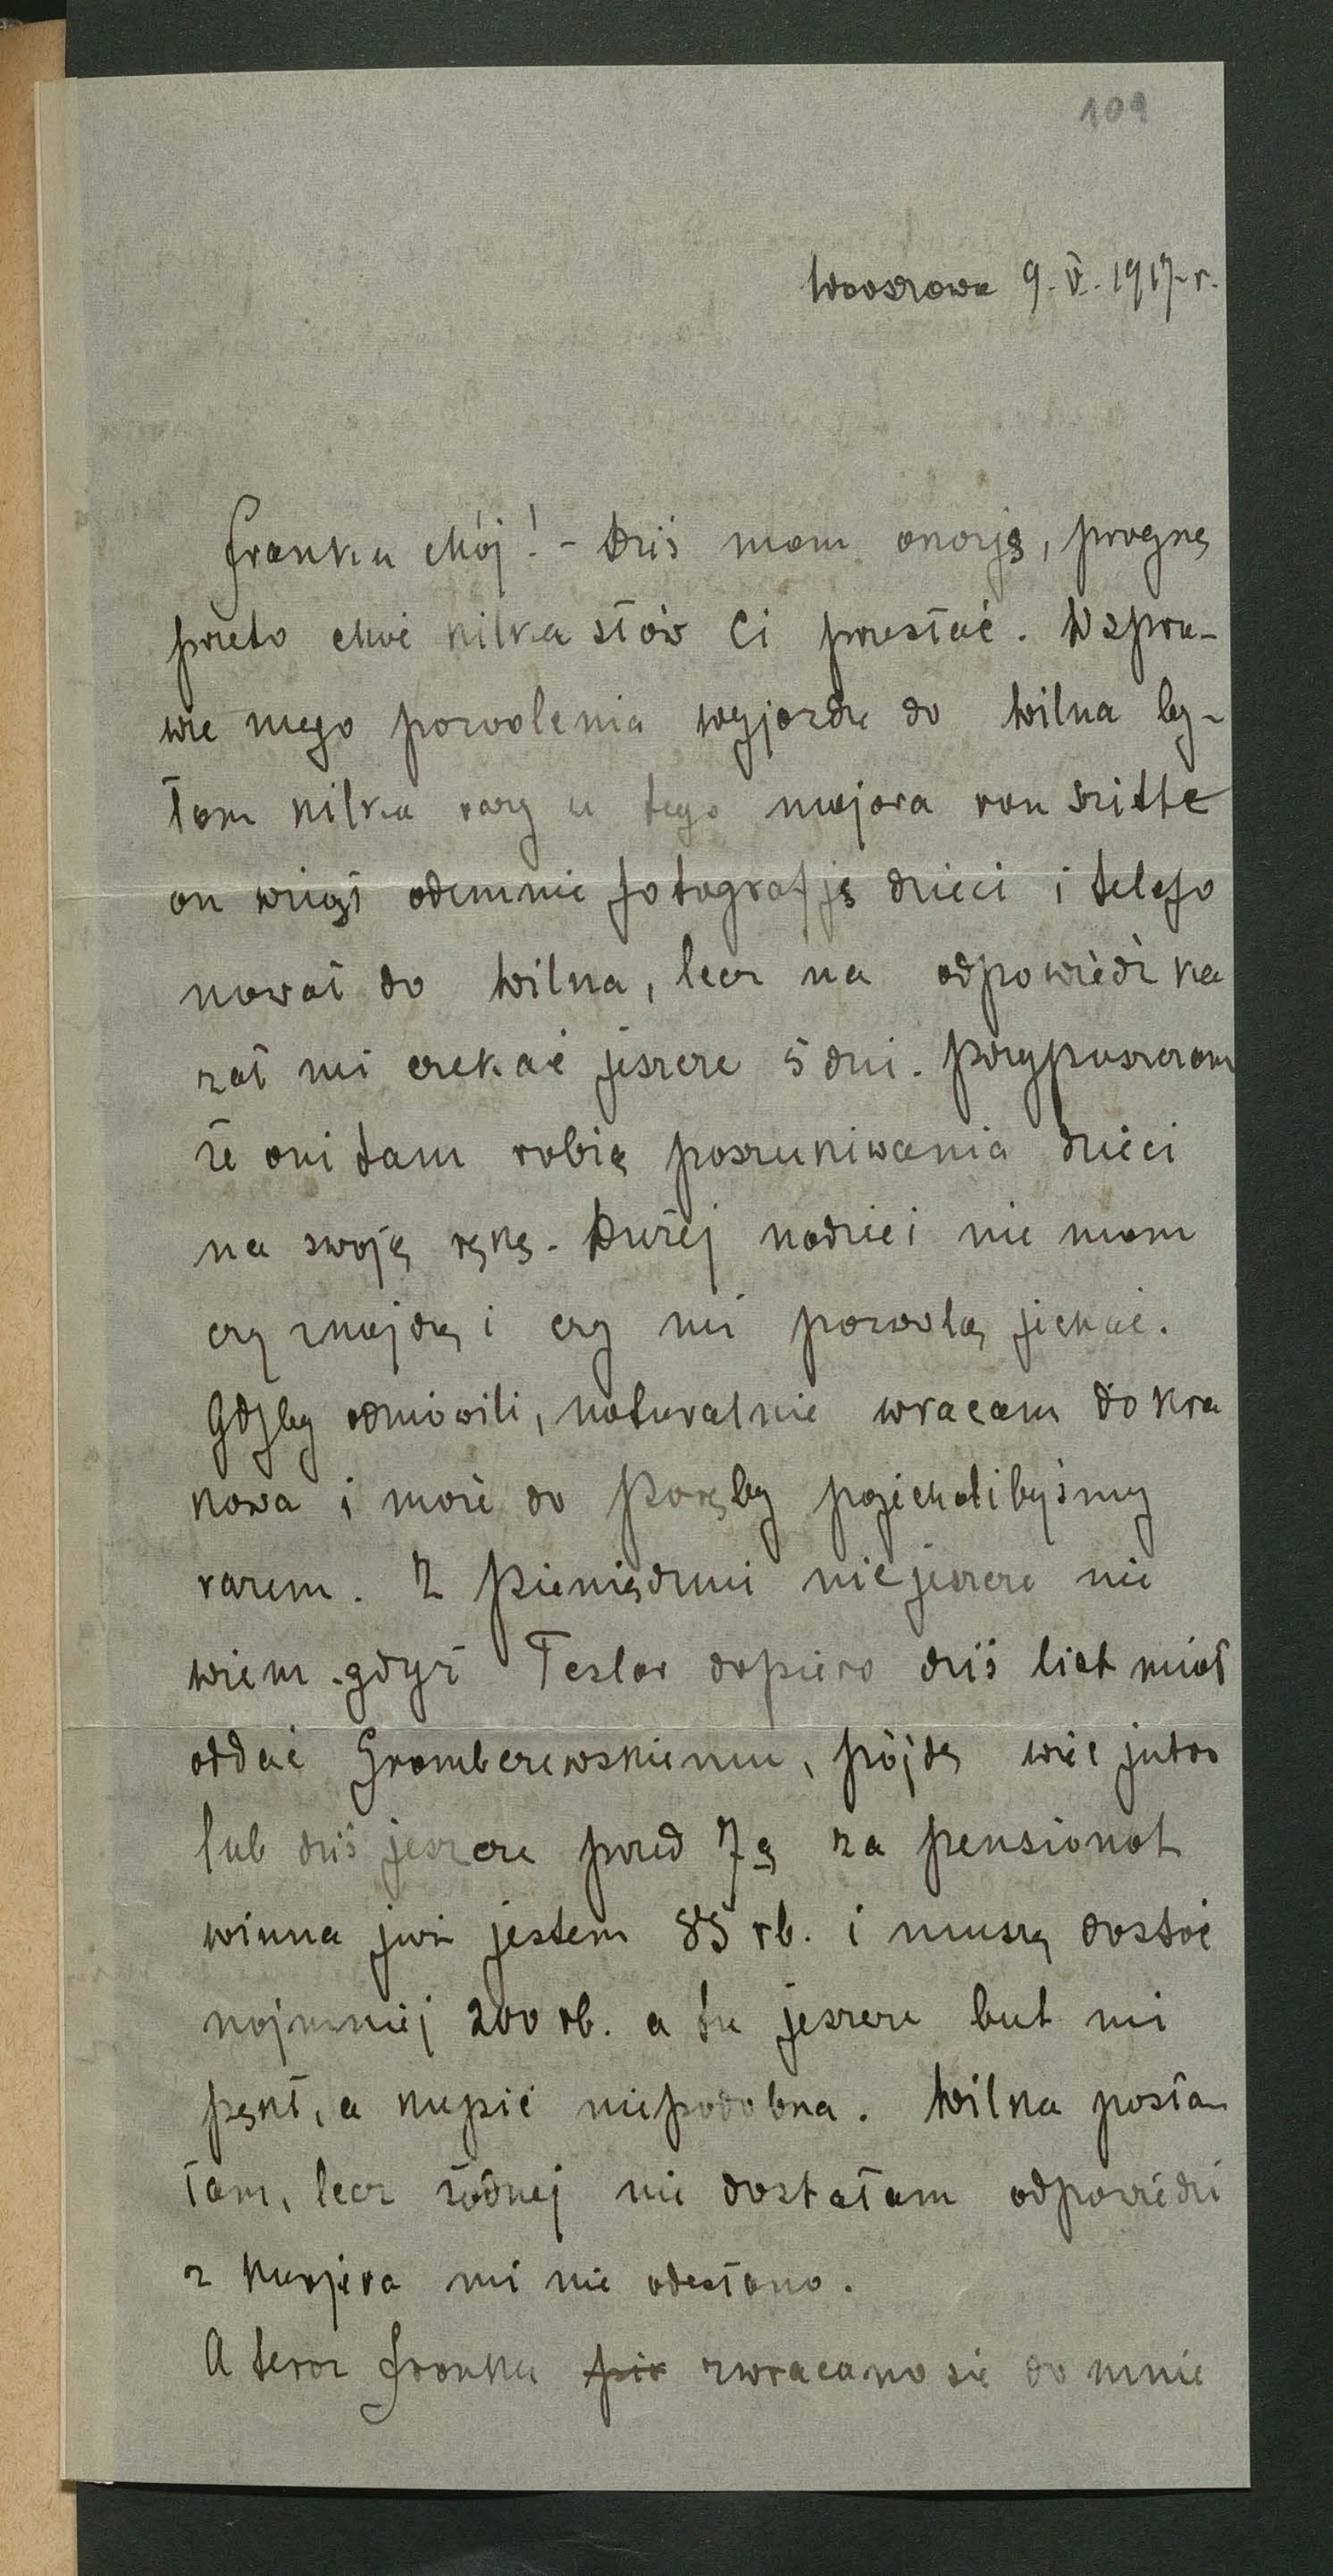 109
Warszawa 9.V.1917 r.
Franku Mój! - Dziś mam okazję, pragnę
przeto choć kilka słów Ci przesłać. W spra-
wie mego pozwolenia wyjazdu do Wilna by-
łam kilka razy u tego majora von Szitte
on wziął odemnie fotografję dzieci i telefo
nował do Wilna, lecz na odpowiedź ka
zał mi czekać jeszcze 5 dni. Przypuszczam
że oni tam robią poszukiwania dzieci
na swoją rękę. Dużej nadziei nie mam
czy znajdą i czy mi pozwolą jechać.
Gdyby odmówili, naturalnie wracam do Kra
kowa i może do Poręby pojechalibyśmy
razem. Z pieniędzmi nic jeszcze nie
wiem gdyż Teslar dopiero dziś list miał
oddać Grombczewskiemu, pójdę więc jutro
lub dziś jeszcze przed 7ą za pensionat
winna już jestem 85 rb. i muszę dostać
najmniej 200 rb. a tu jeszcze but mi
pękł, a kupić niepodobna. Wilka posła-
łam, lecz żadnej nie dostałam odpowiedzi
z Kurjera mi nie odesłano.
A teraz Franku zwracano się do mnie